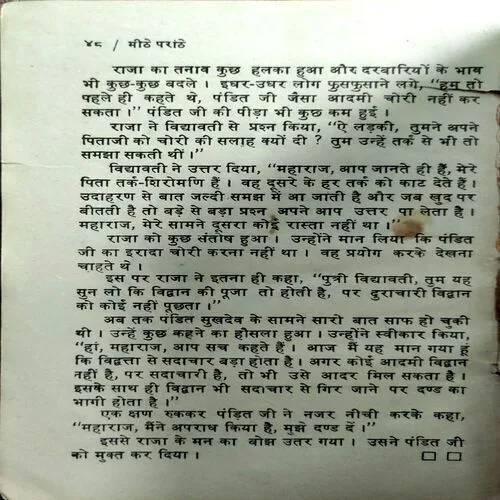 ४८ / मीठे परांठे
राजा का तनाव कुछ हलका हुआ और दरबारियों के भाव
भी कुछ-कुछ बदले । इधर-उधर लोग फुसफुसाने लगे, "हम तो
पहले ही कहते थे, पंडित जी जैसा आदमी चोरी नहीं कर
सकता ।" पंडित जी की पीड़ा भी कुछ कम हुई ।
राजा ने विद्यावती से प्रश्न किया, "ऐ लड़की, तुमने अपने
पिताजी को चोरी की सलाह क्यों दी ? तुम उन्हें तर्क से भी तो
समझा सकती थीं ।"
विद्यावती ने उत्तर दिया, "महाराज, आप जानते ही हैं, मेरे
पिता तर्क-शिरोमणि हैं । वह दूसरे के हर तर्क को काट देते हैं ।
उदाहरण से बात जल्दी समझ में आ जाती है और जब खुद पर
बीतती है तो बड़े से बड़ा प्रश्न अपने आप उत्तर पा लेता है ।
महाराज, मेरे सामने दूसरा कोई रास्ता नहीं था ।"
राजा को कुछ संतोष हुआ । उन्होंने मान लिया कि पंडित
जी का इरादा चोरी करना नहीं था । वह प्रयोग करके देखना
चाहते थे ।
इस पर राजा ने इतना ही कहा, "पुत्री विद्यावती, तुम यह
सुन लो कि विद्वान की पूजा तो होती है, पर दुराचारी विद्वान
को कोई नहीं पूछता ।"
अब तक पंडित सुखदेव के सामने सारी बात साफ हो चुकी
थी । उन्हें कुछ कहने का हौसला हुआ । उन्होंने स्वीकार किया,
"हां, महाराज, आप सच कहते हैं । आज मैं यह मान गया हूं
कि विद्वत्ता से सदाचार बड़ा होता है । अगर कोई आदमी विद्वान
नहीं है, पर सदाचारी है, तो भी उसे आदर मिल सकता है ।
इसके साथ ही विद्वान भी सदाचार से गिर जाने पर दण्ड का
भागी होता है ।"
एक क्षण रुककर पंडित जी ने नजर नीची करके कहा,
"महाराज, मैंने अपराध किया है, मुझे दण्ड दें ।"
इससे राजा के मन का बोझ उतर गया । उसने पंडित जी
को मुक्त कर दिया ।